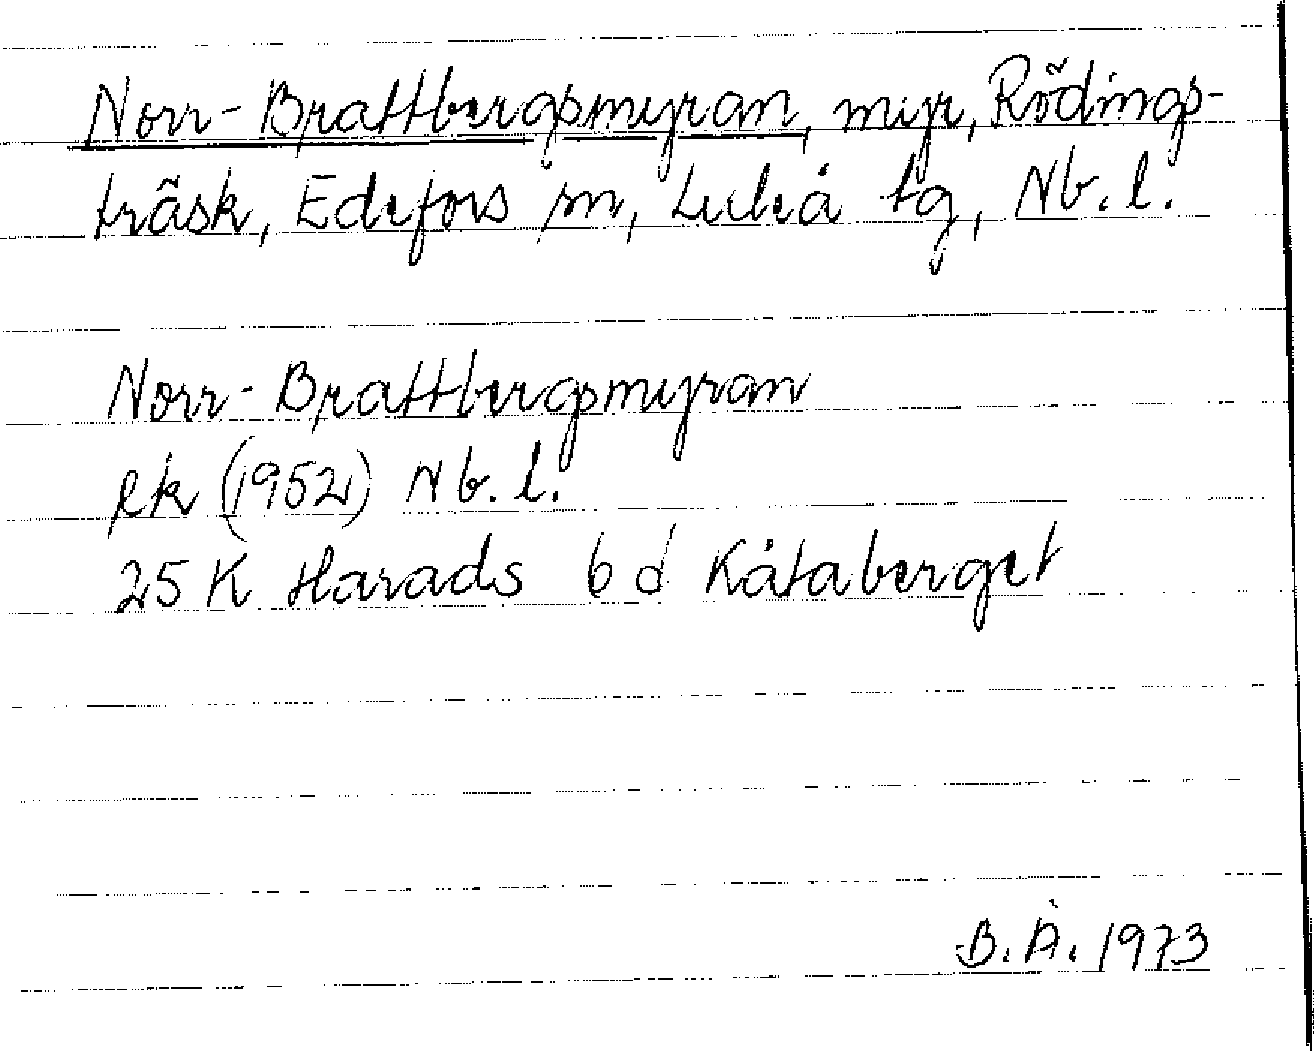 Norr-Brattbergsmyran, myr, Rödings-
träsk, Edefors sn, Luleå tg, Nb. l.
Norr-Brattbergsmyran
rk (1952) Nb. l.
25 K Harads 6 d Kåtaberget
B. Å. 1973